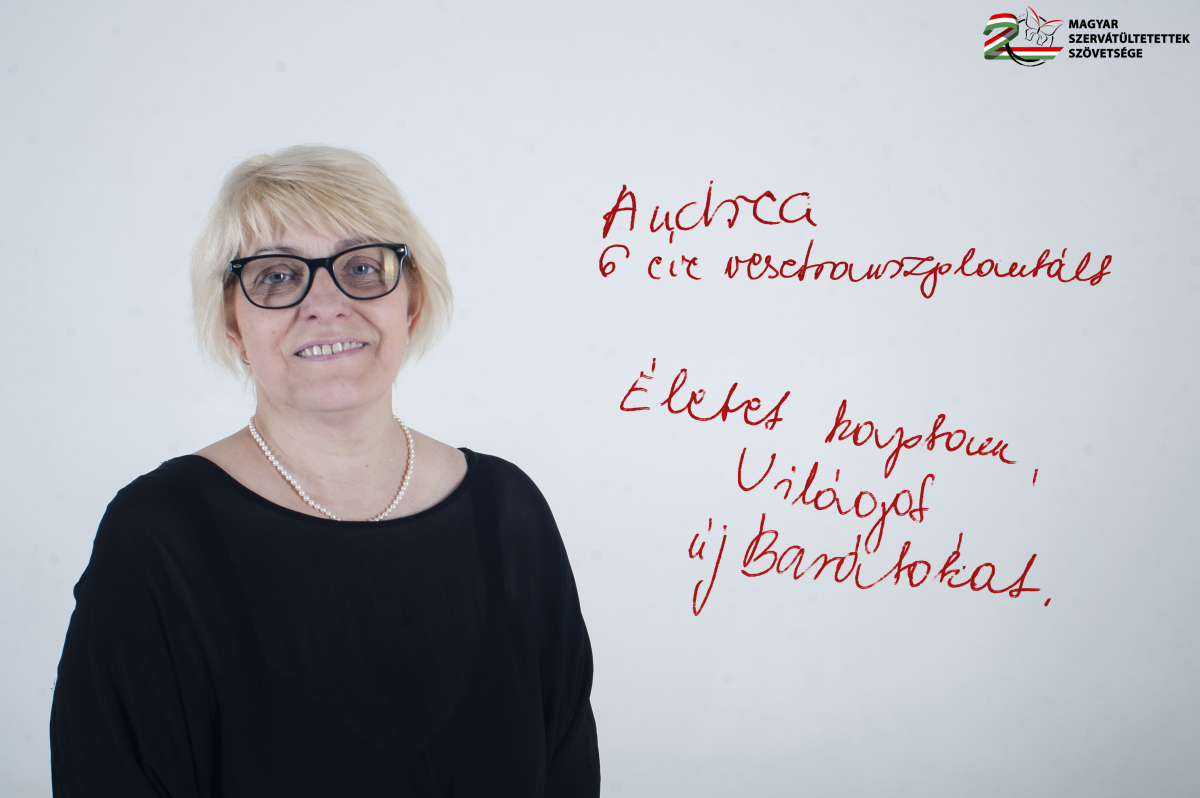 MAGYAR
SZERVÁTÜLTETETTEK
SZÖVETSÉGE
Andrea
6 éve vesetranszplantált
Életet kaptam,
Világot
új Barátokat.